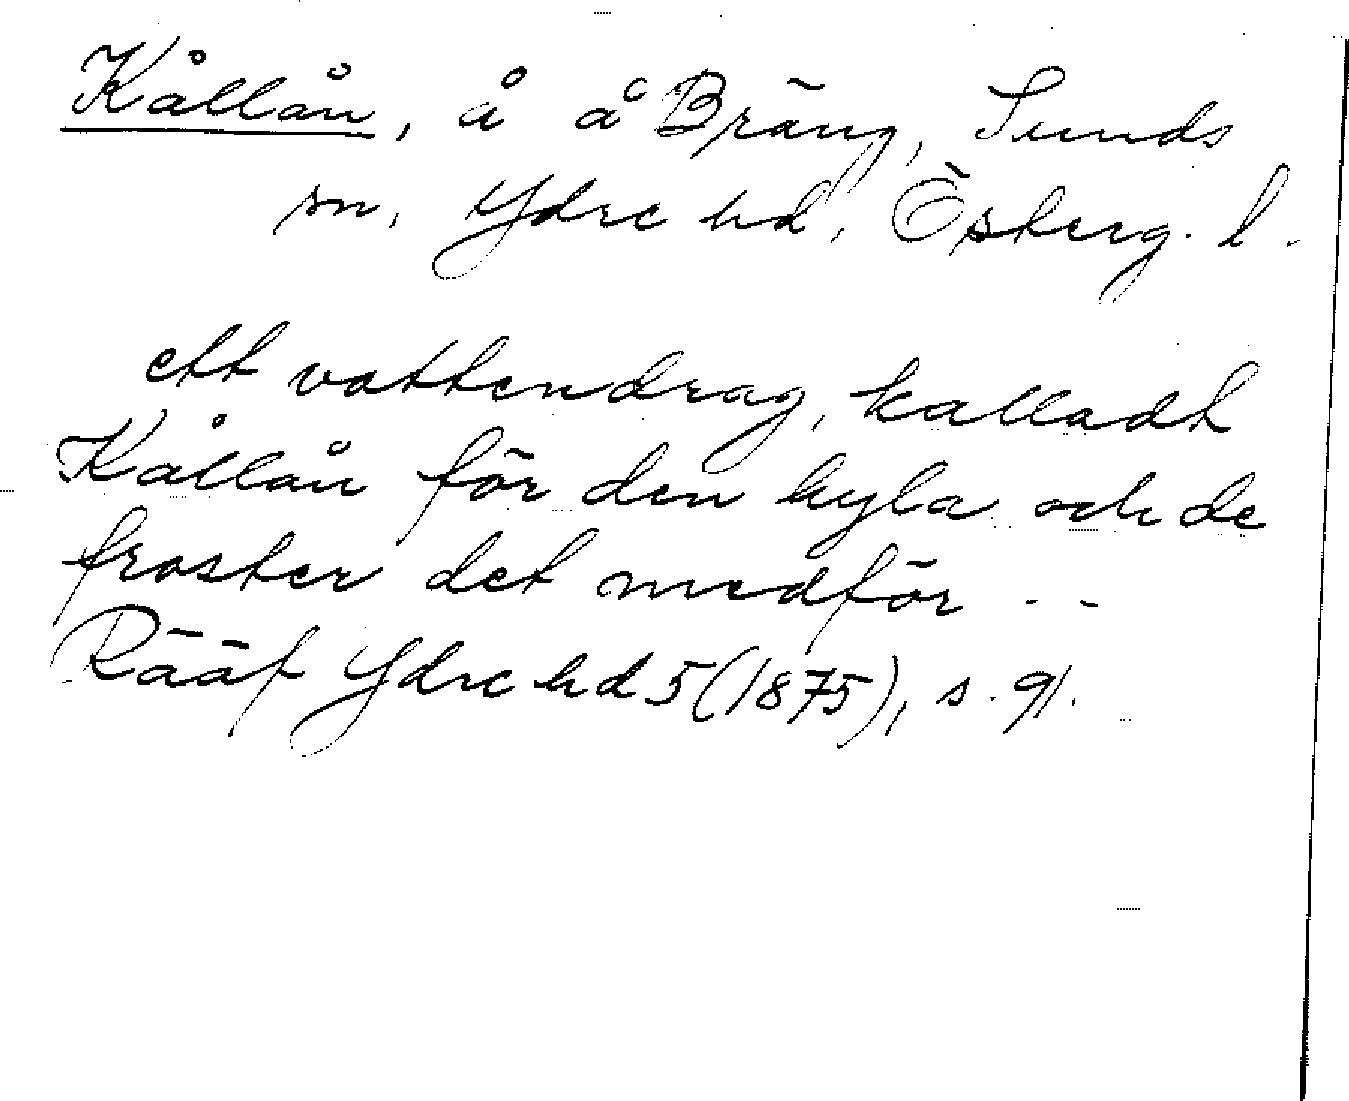 Kållån, å å Bräng, Sunds
sn. Ydre hd, Österg. l.
ett vattendrag, kalladt
Kållån för den kyla och de
froster det medför - -
Rääf Ydre hd 5 (1875), s. 91.